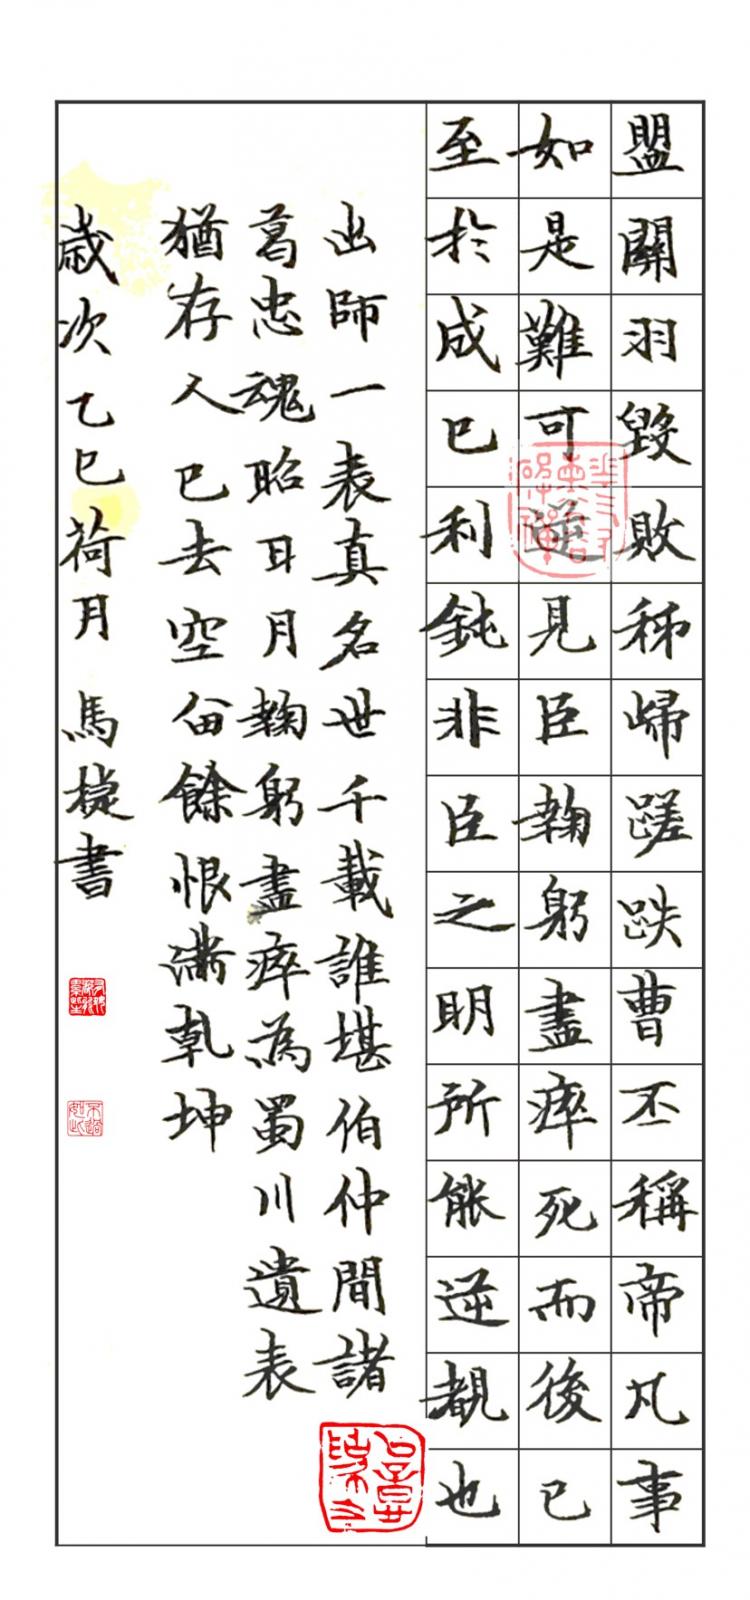 盟關羽毀敗秭歸蹉跌曹丕稱帝凡事
如是難可逆見臣鞠躬盡瘁死而後已
至於成已利鈍非臣之明所能逆覩也
出師一表真名世千載誰堪伯仲間諸
葛忠魂昭日月鞠躬盡瘁為蜀川遺表
猶存人已去空留餘恨滿乾坤
歲次乙巳荷月馬捷書